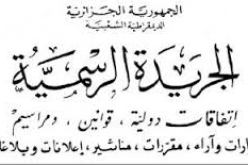 الجمهورية الجزائرية
الديمقراطية الشعبية
الجريدة الرسمية
إتفاقات دولية ، قوانين ، ومراسيم
وآراء ، مقررات ، مناشير ، إعلانات وبلاغا